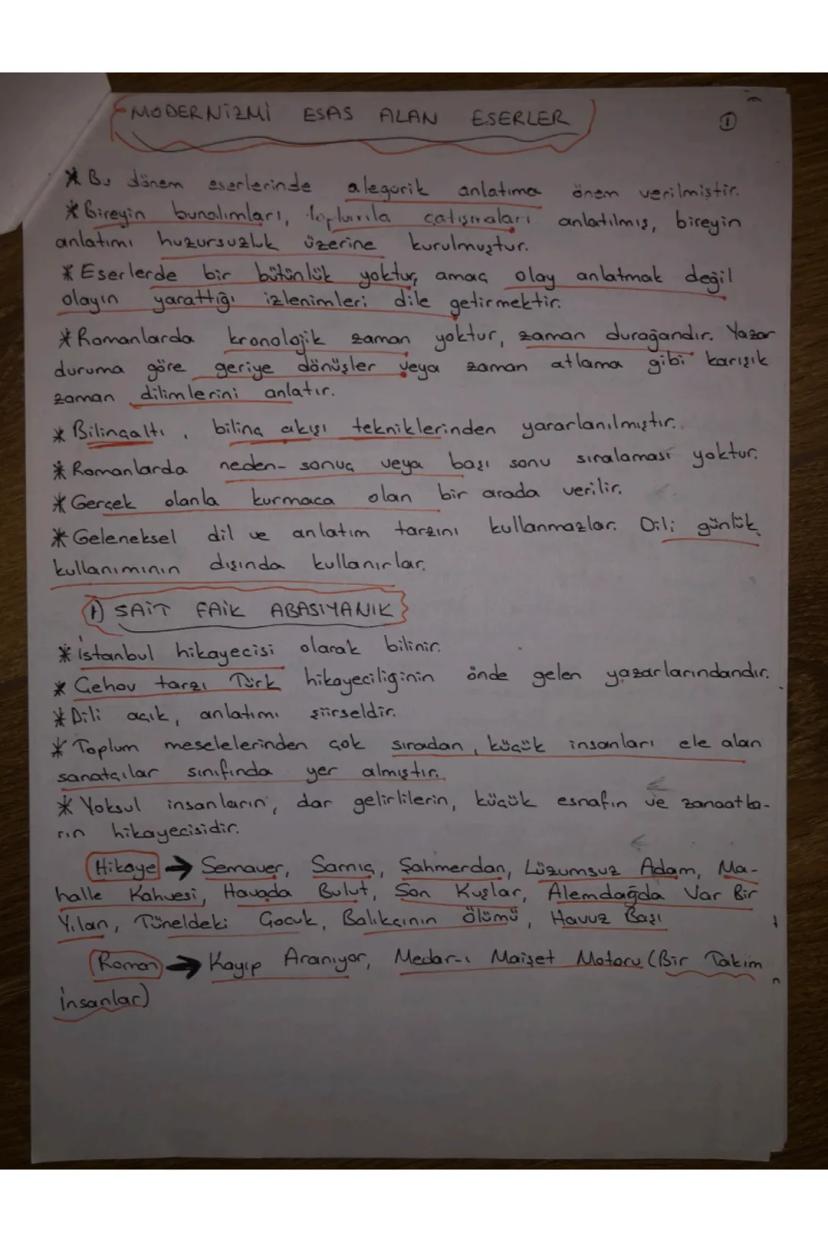 MODERNİZMİ ESAS ALAN ESERLER
1
* Bu dönem eserlerinde alegorik anlatıma önem verilmiştir.
* Bireyin bunalımları, toplumla çatışmaları anlatılmış, bireyin
anlatımı huzursuzluk üzerine kurulmuştur.
* Eserlerde bir bütünlük yoktur, amaç olay anlatmak değil
olayın yarattığı izlenimleri dile getirmektir.
* Romanlarda kronolojik zaman yoktur, zaman durağandır. Yazar
duruma göre geriye dönüşler veya zaman atlama gibi karışık
zaman dilimlerini anlatır.
* Bilinçaltı, bilinç akışı tekniklerinden yararlanılmıştır.
* Romanlarda neden-sonuç veya başı sonu sıralaması yoktur.
* Gerçek olanla kurmaca olan bir arada verilir.
* Geleneksel dil ve anlatım tarzını kullanmazlar. Dili günlük
kullanımının dışında kullanırlar.
1) SAİT FAİK ABASIYANIK
* İstanbul hikayecisi olarak bilinir.
* Çehov tarzı Türk hikayeciliğinin önde gelen yazarlarındandır.
* Dili açık, anlatımı şiirseldir.
* Toplum meselelerinden çok sıradan, küçük insanları ele alan
sanatçılar sınıfında yer almıştır.
* Yoksul insanların, dar gelirlilerin, küçük esnafın ve zanaatka-
rın hikayecisidir.
Hikaye → Semaver, Sarnıç, Şahmerdan, Lüzumsuz Adam, Ma-
halle Kahvesi, Havada Bulut, Son Kuşlar, Alemdağda Var Bir
Yılan, Tüneldeki Çocuk, Balıkçının Ölümü, Havuz Başı
Roman → Kayıp Aranıyor, Medar-ı Maişet Motoru (Bir Takım
İnsanlar)